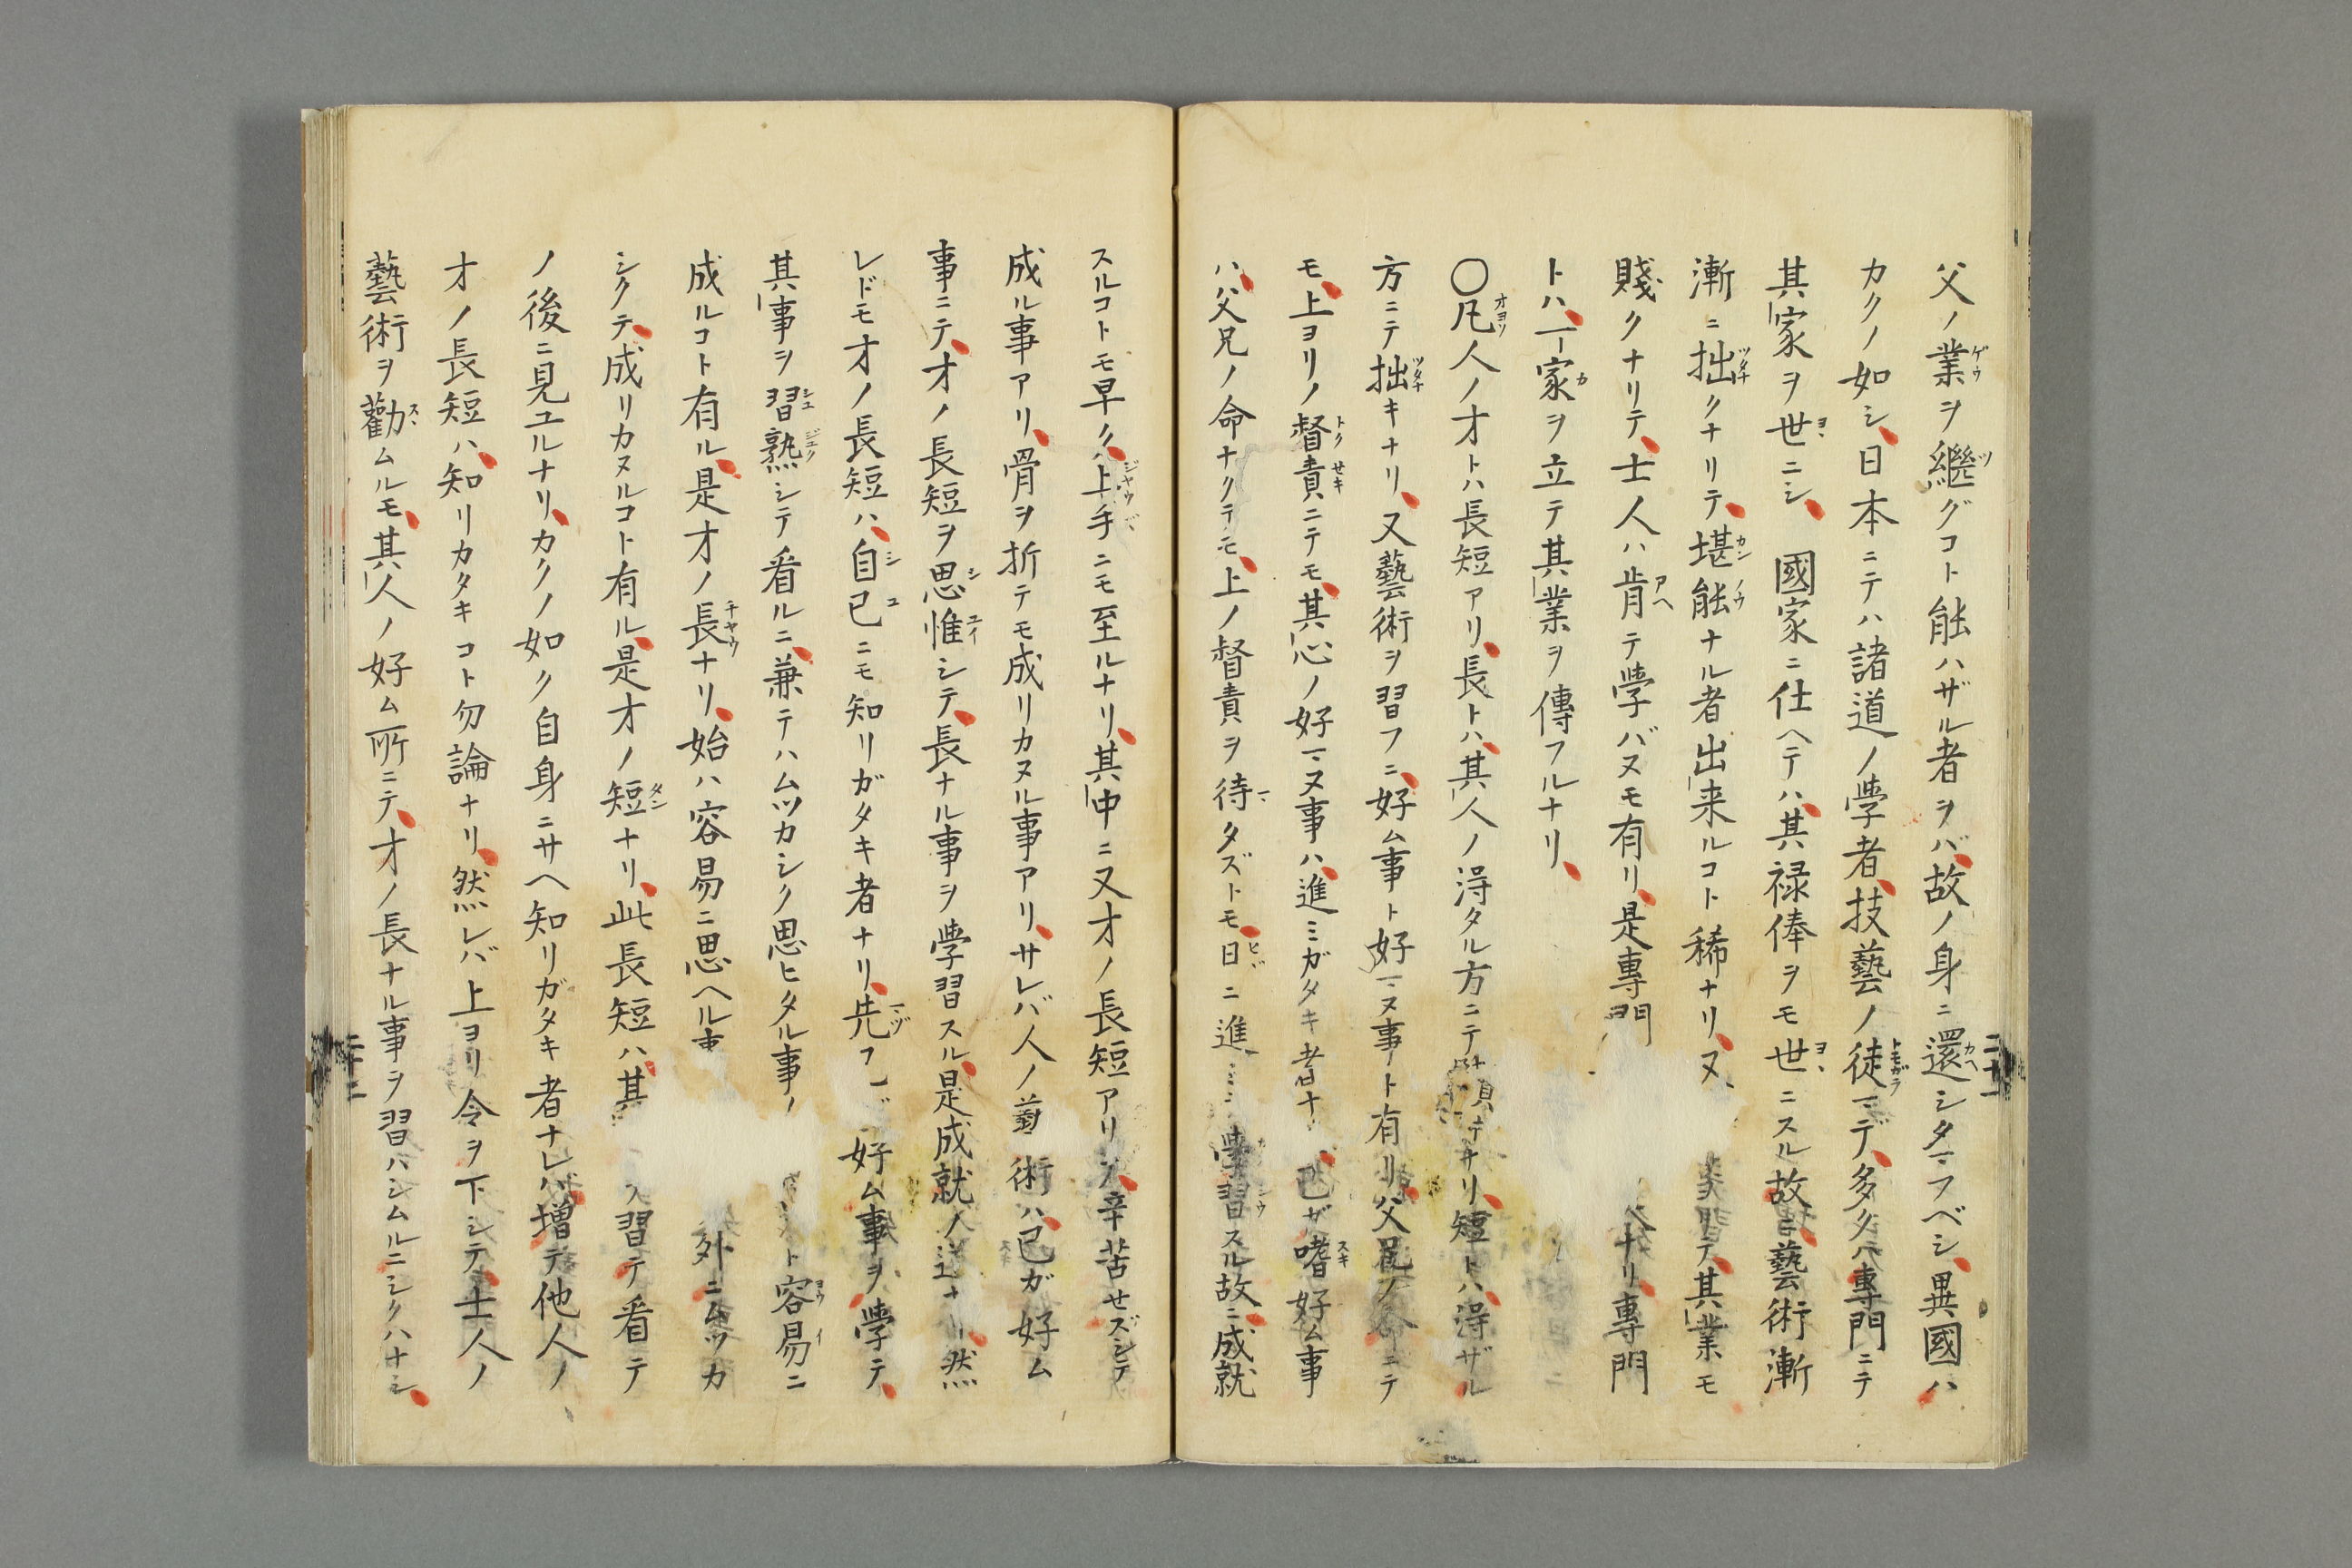 父ノ業ヲ繼グコト能ハザル者ヲバ、故ノ身ニ還シタマフベシ、異國ハ
カクノ如シ、日本ニテハ諸道ノ學者、技藝ノ徒マデ、多クハ專門ニテ
其家ヲ世ニシ、國家ニ仕ヘテハ、其禄俸ヲモ世ニスル故ニ、藝術漸
漸ニ拙クナリテ、堪能ナル者出来ルコト稀ナリ、又リテ、其業モ
賤クナリテ、士人ハ肯テ學バヌモ有リ、是專門ナリ、專門
トハ、一家ヲ立テ其業ヲ傳フルナリ、
〇凡人ノ才トハ長短アリ、長トハ、其人ノ得タル方ニテナリ、短トハ、得ザル
方ニテ拙キナリ、又藝術ヲ習フニ、好ム事ト好マヌ事ト有リ、父兄ノ命ニテ
モ、上ヨリノ督責ニテモ、其心ノ好マヌ事ハ、進ミガタキ者ナ己ガ嗜好ム事
ハ、父兄ノ命ナクテモ、上ノ督責ヲ待タズトモ、日ニ進ミ學習スル故ニ、成就
スルコトモ早ク、上手ニモ至ルナリ、其中ニ又才ノ長短アリ、辛苦セズシテ
成ル事アリ、骨ヲ折テモ成リカヌル事アリ、サレバ人ノ藝術ハ、己ガ好ム
事ニテ、才ノ長短ヲ思惟シテ、長ナル事ヲ學習スル、是成就ノ道ナリ、然
レドモ才ノ長短ハ、自己ニモ知リガタキ者ナリ、先好ム事ヲ學テ、
其事ヲ習熟シテ看ルニ、兼テハムツカシク思ヒタル事ノト容易ニ
成ルコト有ル、是才ノ長ナリ、始ハ容易ニ思ヘル事外ニムツカ
シクテ、成リカヌルコト有ル、是才ノ短ナリ、此長短ハ、其習テ看テ
ノ後ニ見ユルナリ、カクノ如ク自身ニサヘ知リガタキ者ナレバ、増テ他人ノ
才ノ長短ハ、知リカタキコト勿論ナリ、然レバ上ヨリ令ヲ下シテ、士人ノ
藝術ヲ勸ムルモ、其人ノ好ム所ニテ、才ノ長ナル事ヲ習ハシムルニシクハナシ、